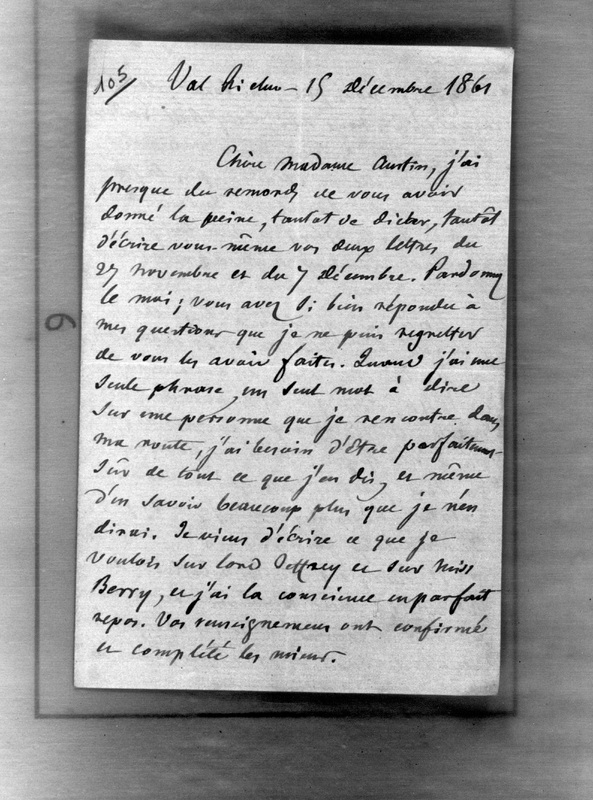 105/
Val Richer – 15 Décembre 1861
Chère Madame Austin, j'ai
presque du remords de vous avoir
donné la peine, tantot de dicter, tantôt
d'écrire vous-même vos deux lettres du
27 novembre et du 7 Décembre. Pardonnez
le moi; vous avez si bien répondu à
mes questions que je ne puis regretter
de vous les avoir faites. Quand j'ai une
seule phrase, un seul mot à dire
sur une personne que je rencontre dans
ma route, j'ai besoin d'être parfaitement
sûr de tout ce que j'en dis, et même
d'en savoir beaucoup plus que je n'en
dirai. Je viens d'écrire ce que je
voulois sur lord Jeffrey et sur Miss
Berry, et j'ai la conscience en parfait
repos. Vos renseignemens ont confirmé
et complété les miens.
9